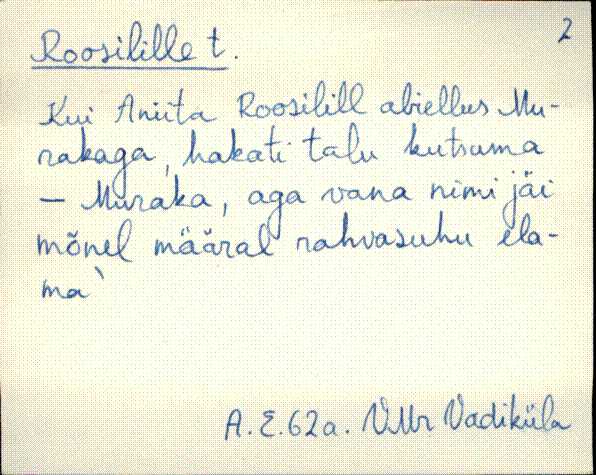 2
Roosilille t.
Kui Aniita Roosilill abiellus Mu-
rakaga, hakati talu kutsuma
– Muraka, aga vana nimi jäi
mõnel määral rahvasuhu ela-
ma`
A. E. 62a. VMr Vadiküla